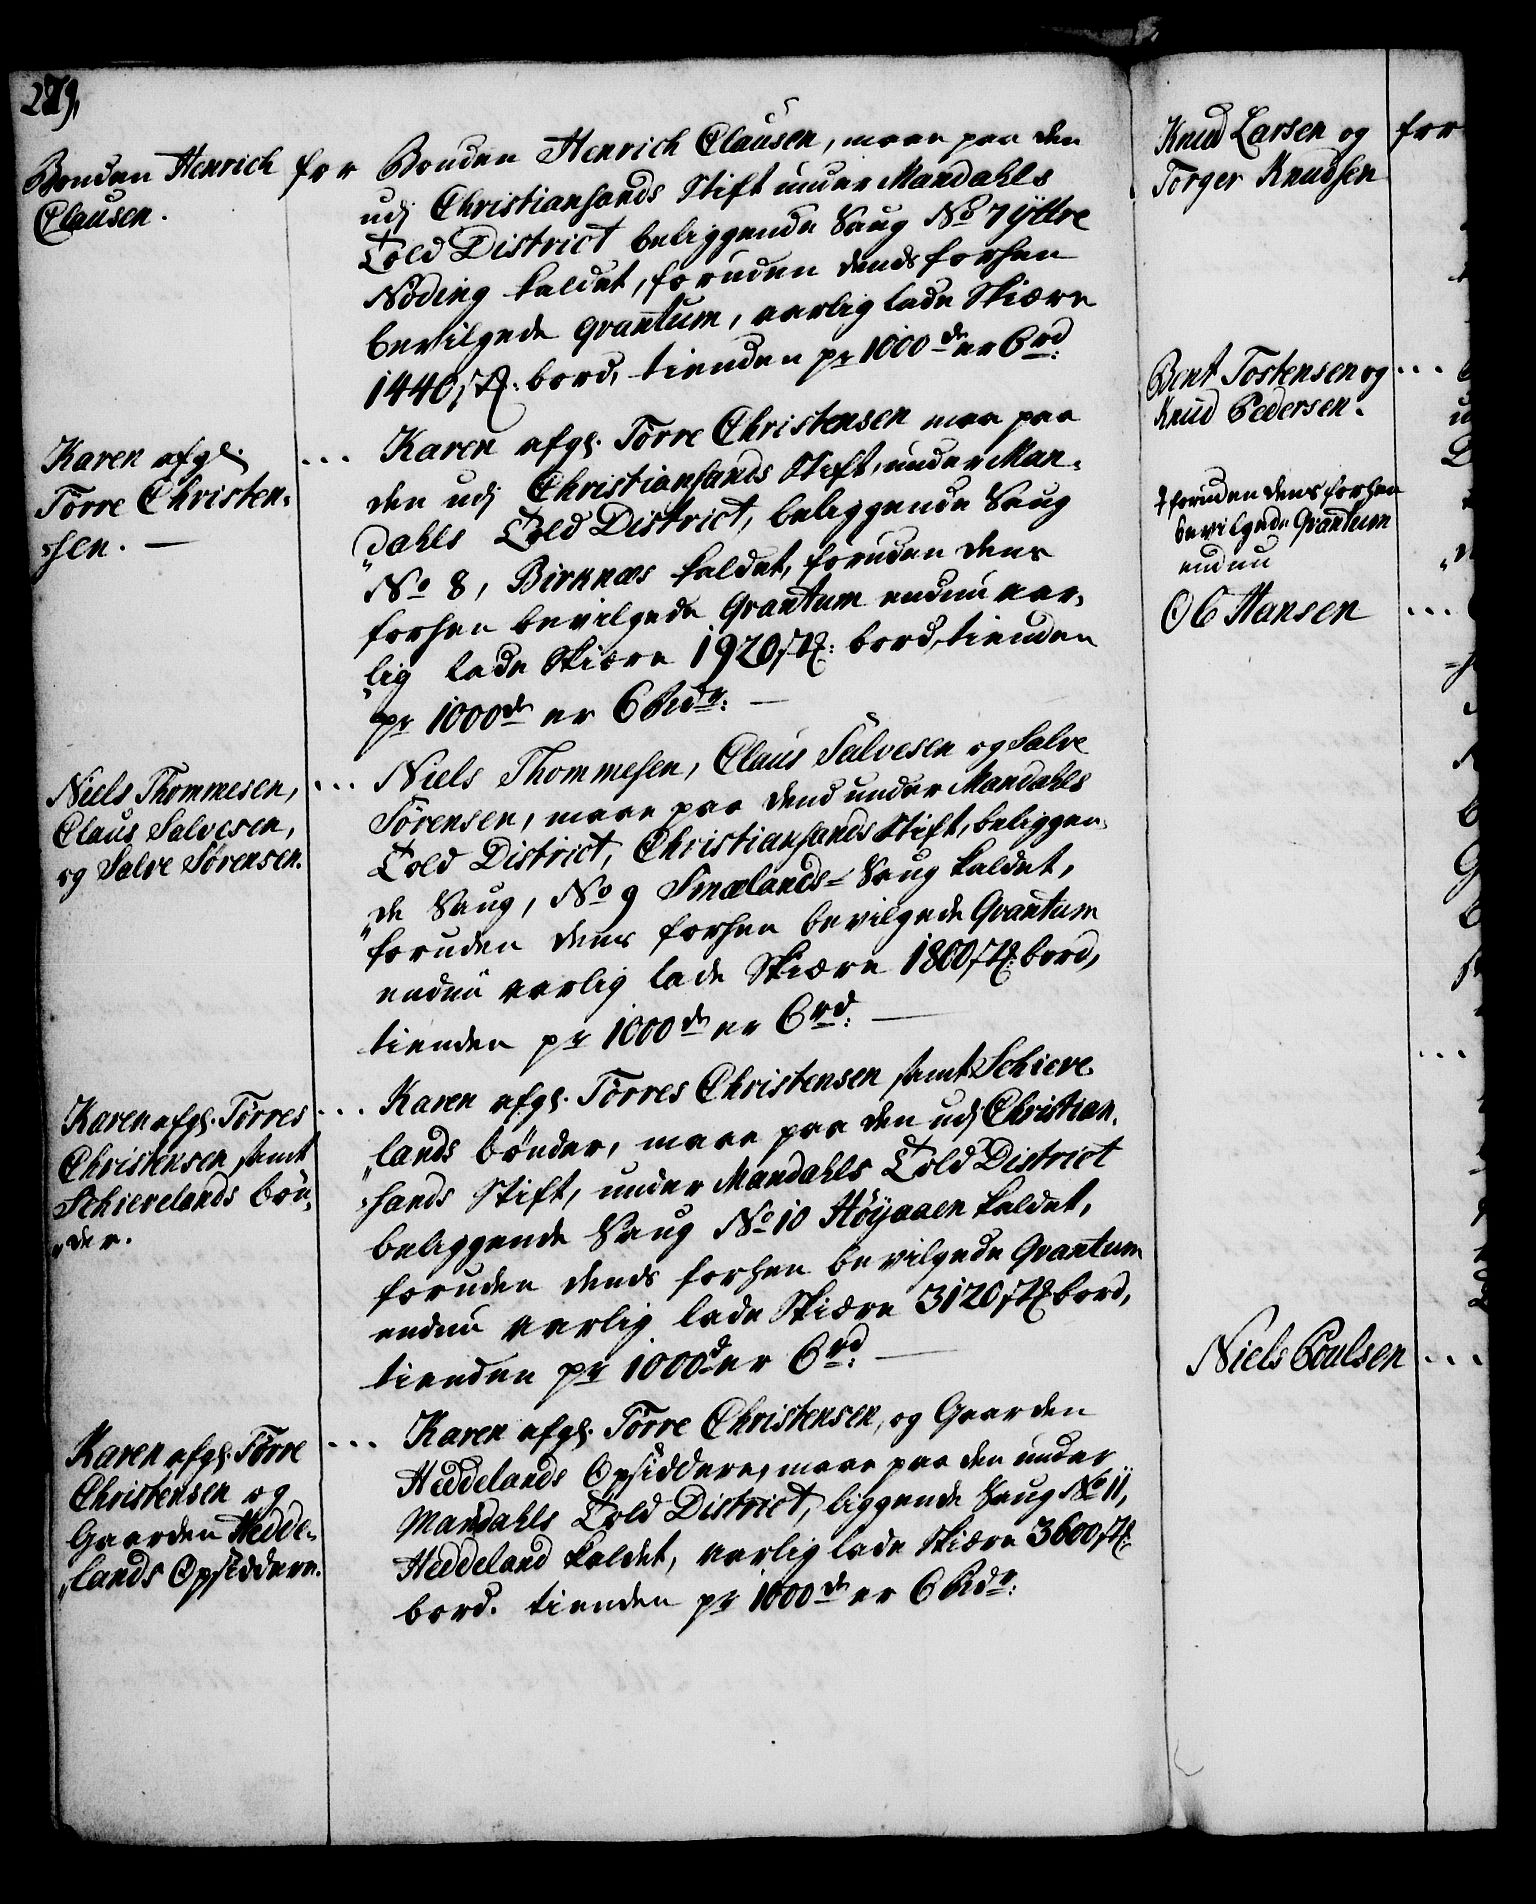 279.
Bonden Henrich for
Clausen.
Bonden Henrich Clausen, maae paa den
udj Christiansands Stift under Mandahls
Told District beliggende Saug No 7 Yttre
Nöding kaldet, foruden dends forhen
bevilgede Qvantum, aarlig lade Skiære
1440 st. bord, tienden pr 1000de er 6 rd.
Karen afgl. ...
Törre Christen-
sen. —
Karen afgl. Törre Christensen maa paa
den udj Christiansands Stift, under Man-
dahls Told District, beliggende Saug
No 8, Birknæs kaldet, foruden dens
forhen bevilgede Qvantum endnu aar-
lig lade Skiære 1920 st. bord, tienden
pr 1000de er 6 Rdr. —
Niels Thommesen, ...
Claus Salvesen,
og Salve Sörensen.
Niels Thommesen, Claus Salvesen og Salve
Sörensen, maae paa dend under Mandahls
Told District, Christiansands Stift, beliggen-
de Saug, No 9 Smælands-Saug kaldet,
foruden dens forhen bevilgede Qvantum
endnu aarlig lade Skiære 1800 st. bord,
tienden pr 1000de er 6 rd. —
Karen afgl. Törres ...
Christensen samt
Schierelands bön-
der.
Karen afgl. Törres Christensen samt Schiere-
lands bönder, maae paa den udj Christian-
sands Stift, under Mandahls Told District
beliggende Saug No 10 Höyaaen kaldet,
foruden dends forhen bevilgede Qvantum
endnu aarlig lade Skiære 3120 st. bord,
tienden pr 1000de er 6 rd. —
Karen afgl. Törre ...
Christensen og
Gaarden Hedde-
lands Opsiddere.
Karen afgl. Törre Christensen, og Gaarden
Heddelands Opsiddere, maae paa den under
Mandahls Told District, liggende Saug No 11,
Heddeland kaldet, aarlig lade Skiære 3600 st.
bord. tienden pr 1000de er 6 Rdr.
Knud Larsen og for
Torger Knudsen
Bent Tostensen og ...
Knud Pedersen.
† foruden dens forhen
bevilgede Qvantum
endnu
Ob Hansen ...
Niels Poulsen ...